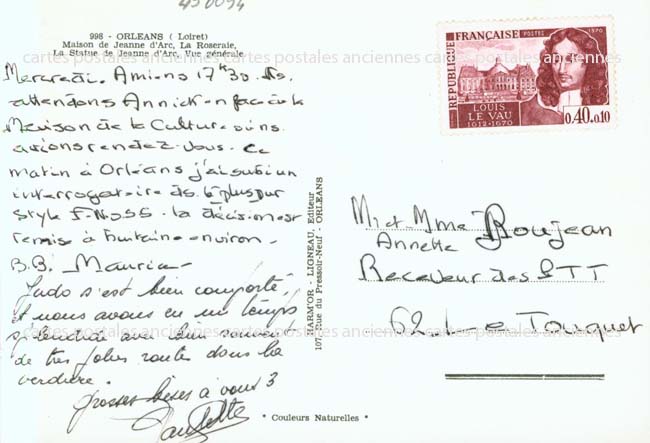 450094
998 - ORLEANS ( Loiret)
Maison de Jeanne d'Arc, La Roseraie,
La Statue de Jeanne d'Arc, Vue générale
cartes postales anciennes cartes postales anciennes cartes postales anciennes
Mercredi. Amiens 17h30. Ns
attendons Annick en face de la
Maison de la Culture où ns
avions rendez-vous. Ce
matin à Orléans j'ai subi un
interrogatoire de le plus pur
style la décision est
remise à huitaine environ.
B.B. Maurice
Judo s'est bien comporté,
et nous avons eu un temps
splendide avec bien souvent
de très jolies routes dans la
verdure.
grosses bises à vous 3
Paulette
HARM'OR - LIGNEAU, Editeur
107, Rue du Pressoir-Neuf - ORLEANS
* Couleurs Naturelles *
RÉPUBLIQUE FRANÇAISE POSTES 1970
LOUIS
LE VAU
1612-1670
0,40+0,10
Mr et Mme Boujean
Annette
Receveur des PTT
62. Le Touquet
cartes postales anciennes cartes postales anciennes cartes postales anciennes